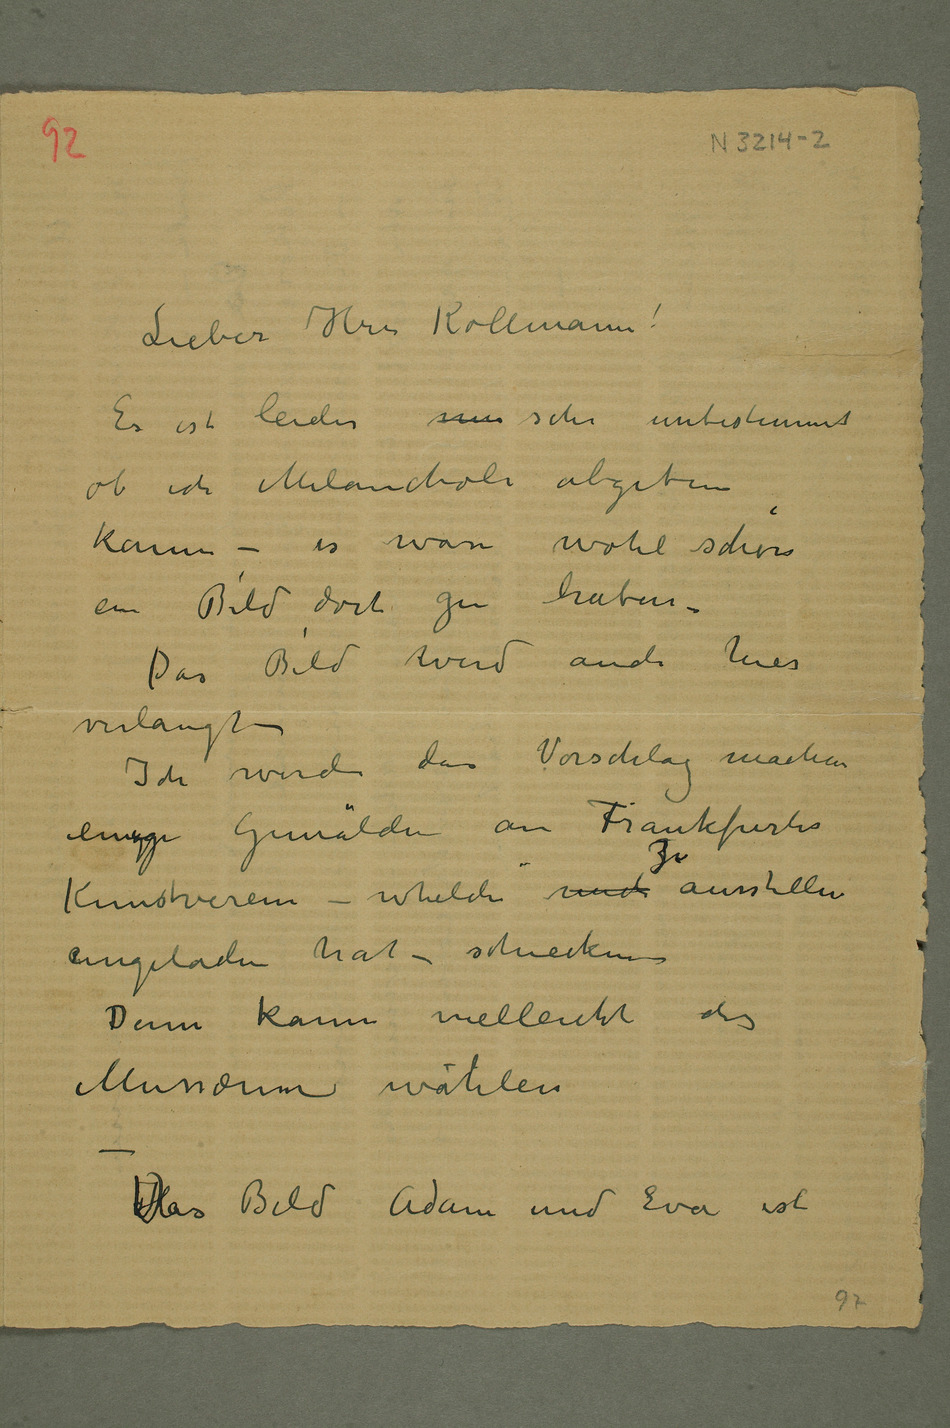 92
N 3214-2
Lieber Herr Kollmann!
Es ist leider nur sehr unbestimmt
ob ich Melancholi abgeben
kann – es wäre wohl schön
ein Bild dort zu haben –
Das Bild wird auch hier
verlangt –
Ich werde den Vorschlag machen
einige Gemälden an Frankfurter
Kunstverein – whelche mich zu ausstellen
eingeladen hat – schicken –
Denn kann vielleicht das
Musæum wählen
—
Das Bild Adam und Eva ist
97